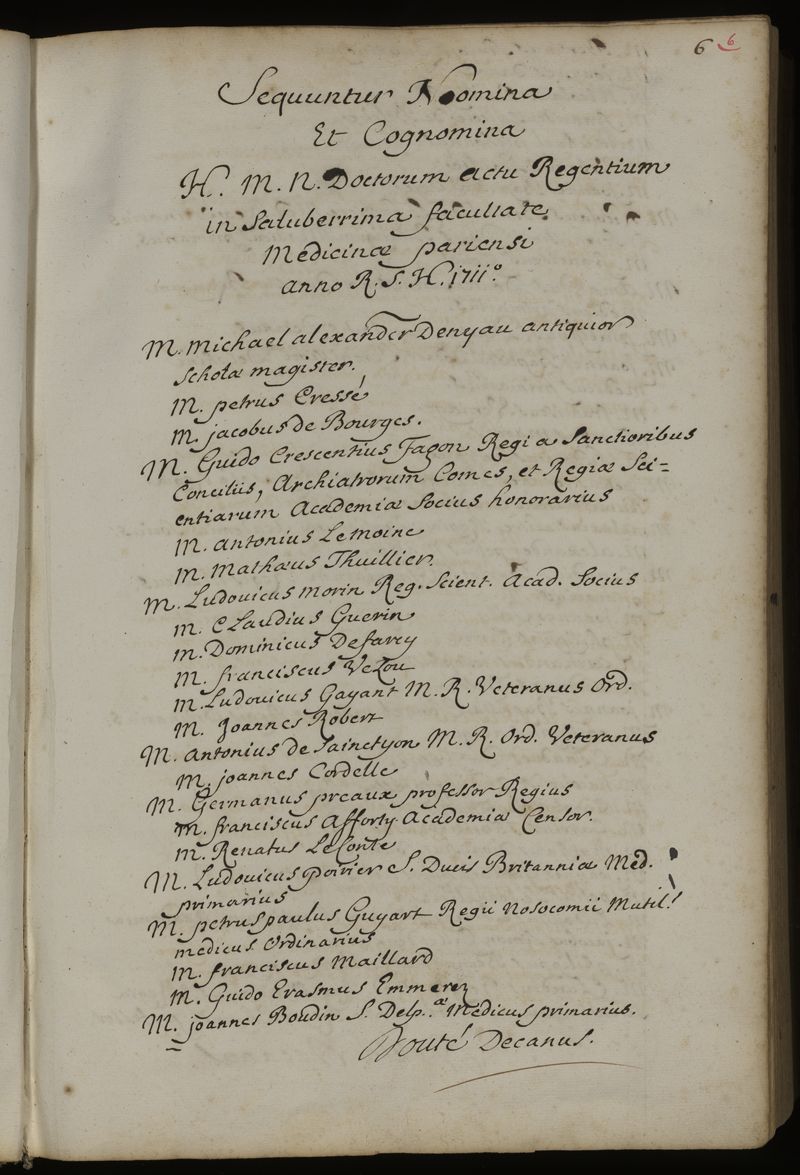 6 6
Sequuntur Nomina
Et Cognomina
H. M. N. Doctorum actu Regentium
in Saluberrima facultate
Medicinæ pariensi
anno R. S. H. 1711°
M. Michael alexander Denyau antiquior
Scholæ magister.
M. petrus Cressé
M. jacobus de Bourges.
M. Guido Crescentius Fagon Regi a Sanctioribus
Conciliis, Archiatrorum Comes, et Regiæ Sci=
entiarum Academiæ Socius honorarius
M. Antonius Le moine
M. Mathæus Thuillier.
M. Ludovicus morin Reg. Scient. Acad. Socius
M. Claudius Guerin
M. Dominicus Defarcy
M. franciscus Vezou
M. Ludovicus Gayant M. R. Veteranus Ord.
M. Joannes Robert
M. Antonius de Sainctyon M. R. Ord. Veteranus
M. joannes Cordelle
M. Germanus preaux professor Regius
M. franciscus Afforty Academiæ Censor.
M. Renatus Le Conte
M. Ludovicus poirier S. Ducis Britanniæ Med.
primarius
M. petrus paulus Guyart Regii Nosocomii Mutil.
medicus Ordinarius
M. franciscus Maillard
M. Guido Erasmus Emmerez
M. joannes Boudin S. Delp.æ Medicus primarius.
Douté Decanus.